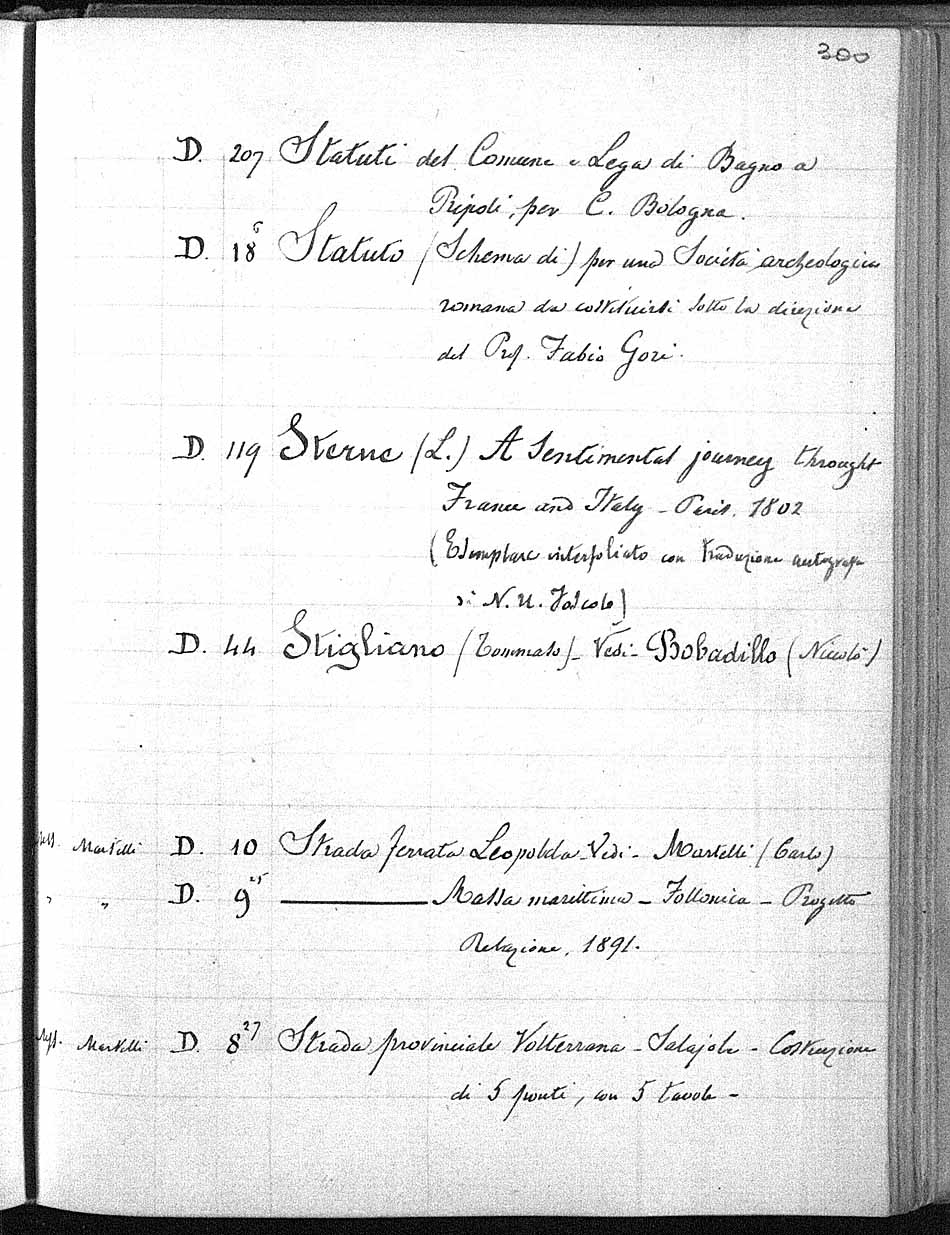 300
D. 207 Statuti del Comune e Lega di Bagno a
Ripoli, per C. Bologna.
D. 18⁶ Statuto (Schema di) per una Società archeologica
romana da costituirsi sotto la direzione
del Prof. Fabio Gori.
D. 119 Sterne (L.) A Sentimental journey throught
France and Italy - Paris. 1802
(Esemplare interfoliato con traduzione autografa
di N. U. Foscolo)
D. 44 Stigliano (Tommaso) - Vedi - Bobadillo (Niccolò)
Martelli D. 10 Strada ferrata Leopolda - Vedi - Martelli (Carlo)
" " D. 9²⁵ ——— Massa marittima - Follonica - Progetto
Relazione, 1891.
Martelli D. 8²⁷ Strada provinciale Volterrana - Salajola - Costruzione
di 5 ponti, con 5 tavole -